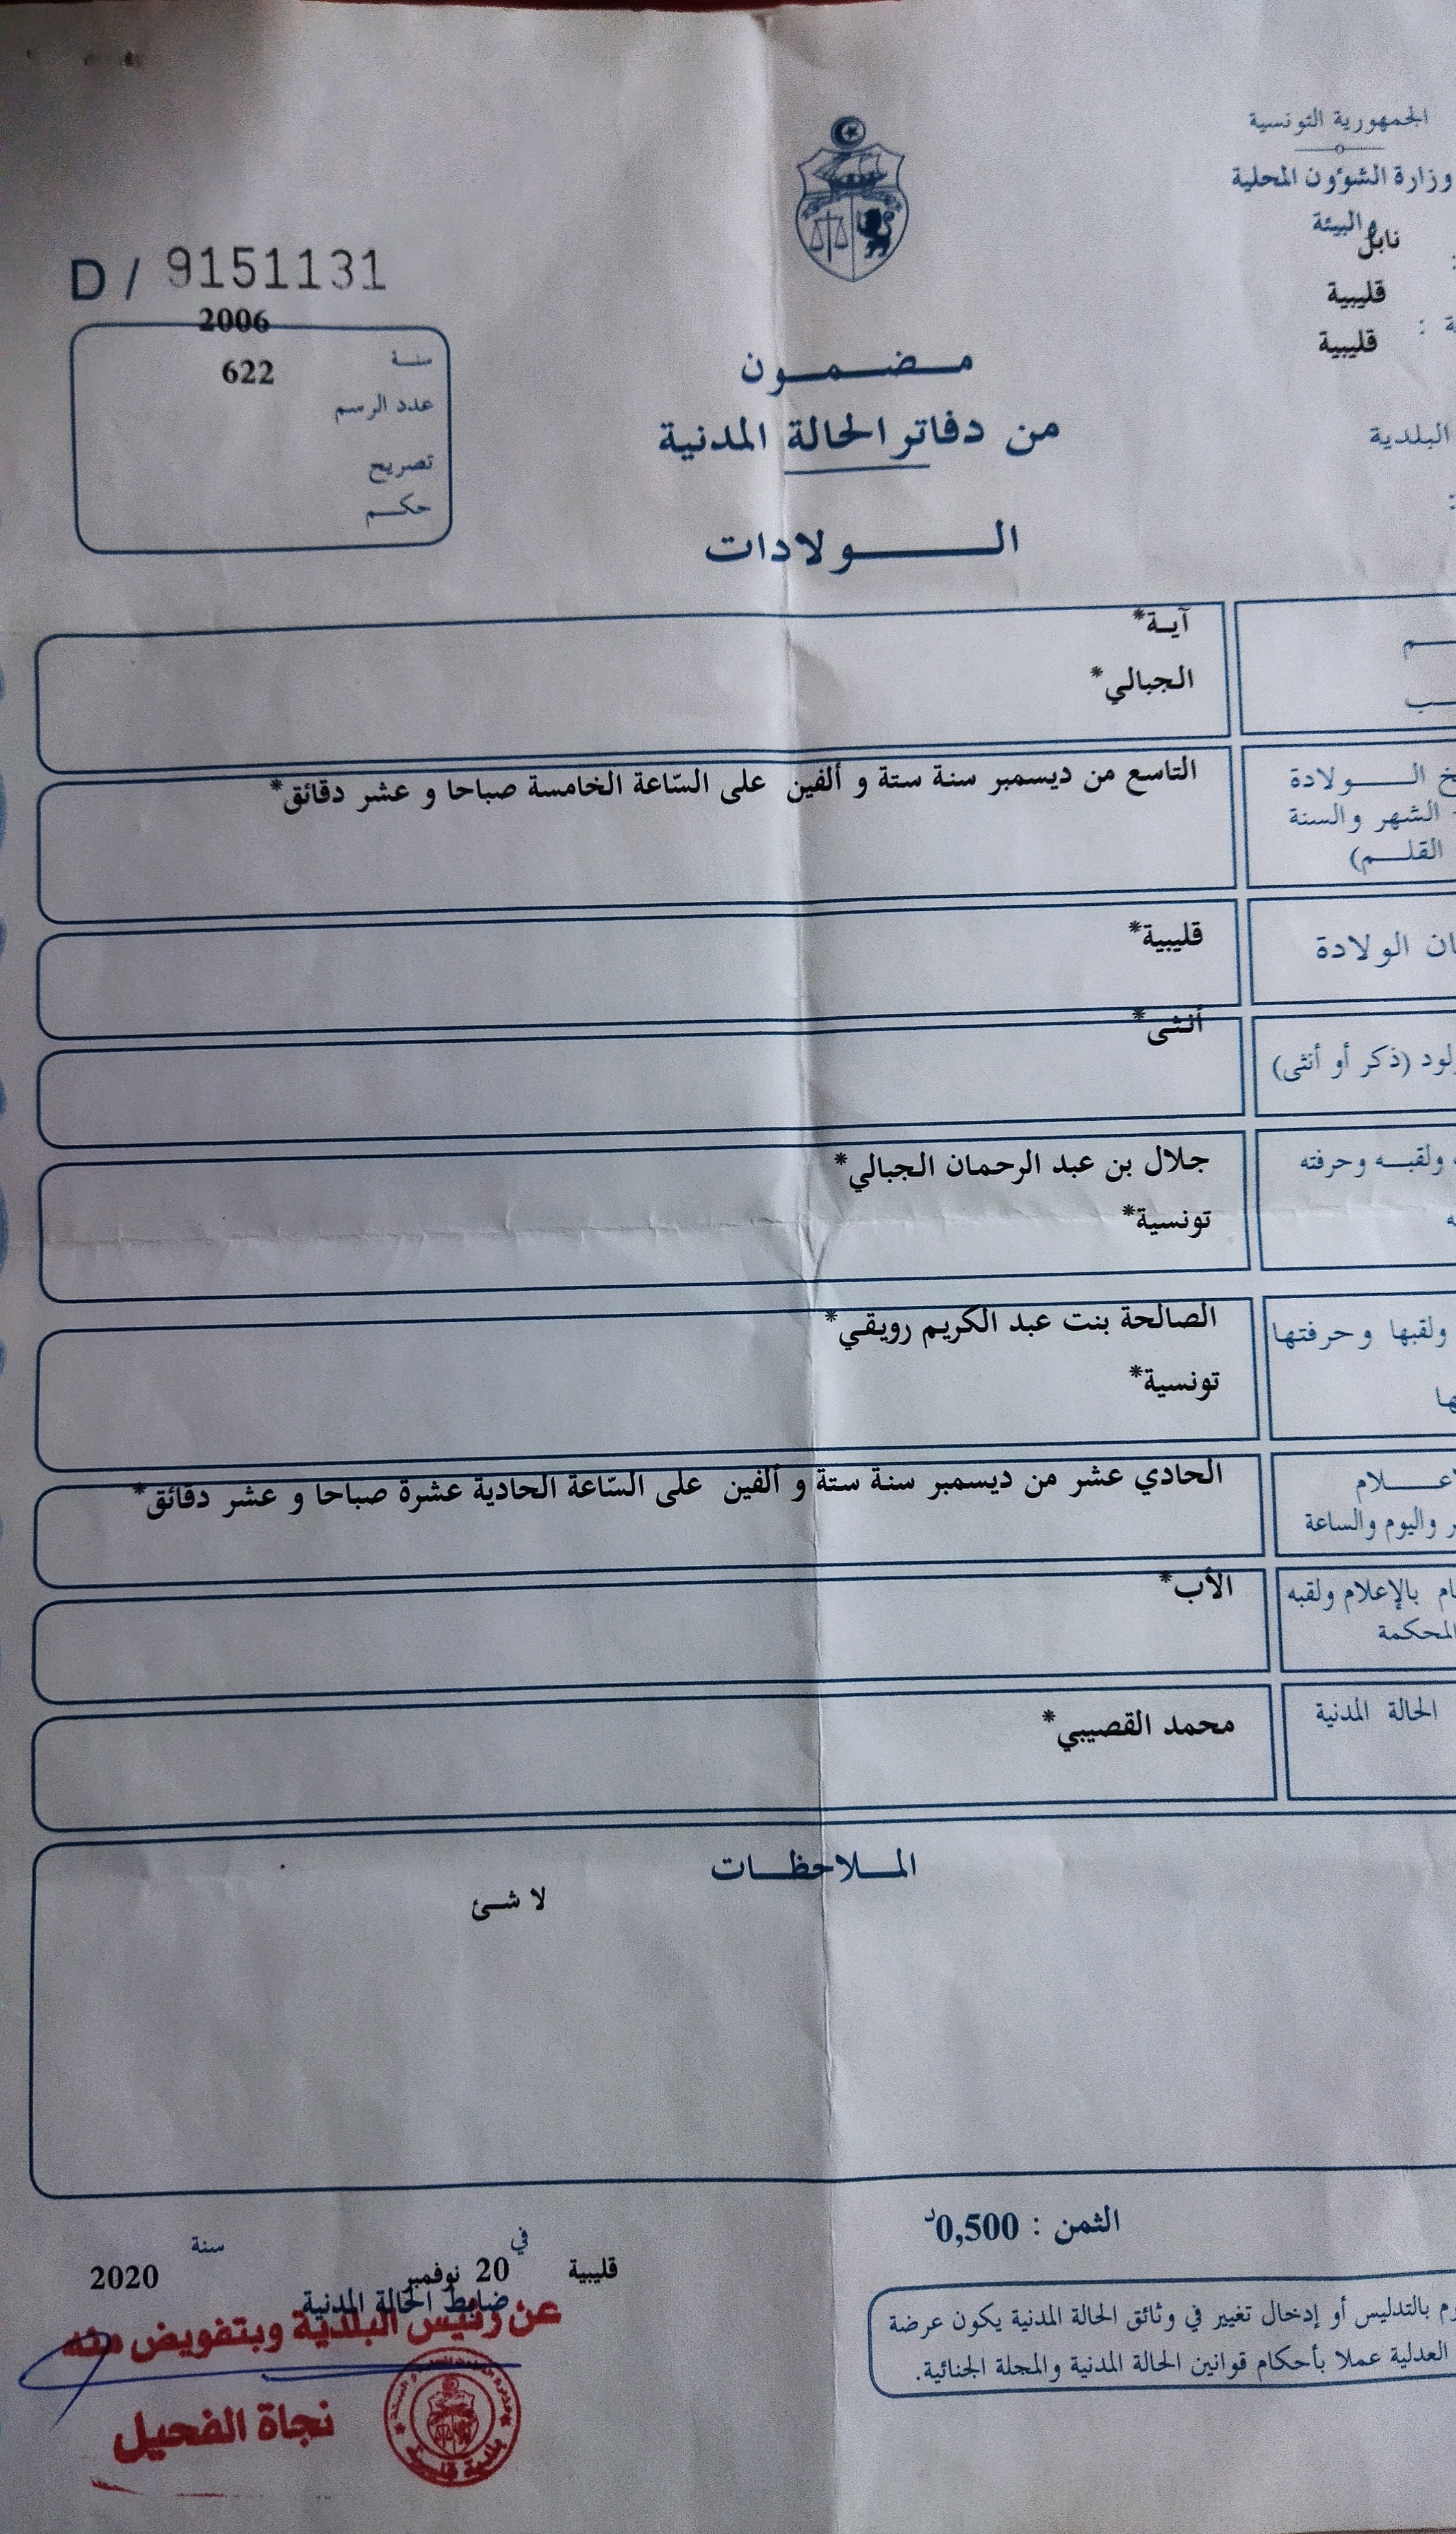 الجمهورية التونسية
وزارة الشؤون المحلية
والبيئة
نابل
قليبية
قليبية
البلدية
D / 9151131
2006
سنة
622
عدد الرسم
تصريح
حكم
مضمون
من دفاتر الحالة المدنية
الولادات
آية*
الجبالي*
الولادة
التاسع من ديسمبر سنة ستة و ألفين على السّاعة الخامسة صباحا و عشر دقائق*
الشهر والسنة
القلم)
الولادة
قليبية*
(ذكر أو أنثى)
أنثى*
ولقبه وحرفته
جلال بن عبد الرحمان الجبالي*
تونسية*
ولقبها وحرفتها
الصالحة بنت عبد الكريم رويقي*
تونسية*
الحادي عشر من ديسمبر سنة ستة و ألفين على السّاعة الحادية عشرة صباحا و عشر دقائق*
واليوم والساعة
بالإعلام ولقبه
المحكمة
الأب*
الحالة المدنية
محمد القصيبي*
الملاحظات
لا شئ
الثمن : 0,500د
قليبية في 20 نوفمبر سنة 2020
ضابط الحالة المدنية
عن رئيس البلدية وبتفويض منه
نجاة الفحيل
بالتدليس أو إدخال تغيير في وثائق الحالة المدنية يكون عرضة
العدلية عملا بأحكام قوانين الحالة المدنية والمجلة الجنائية.